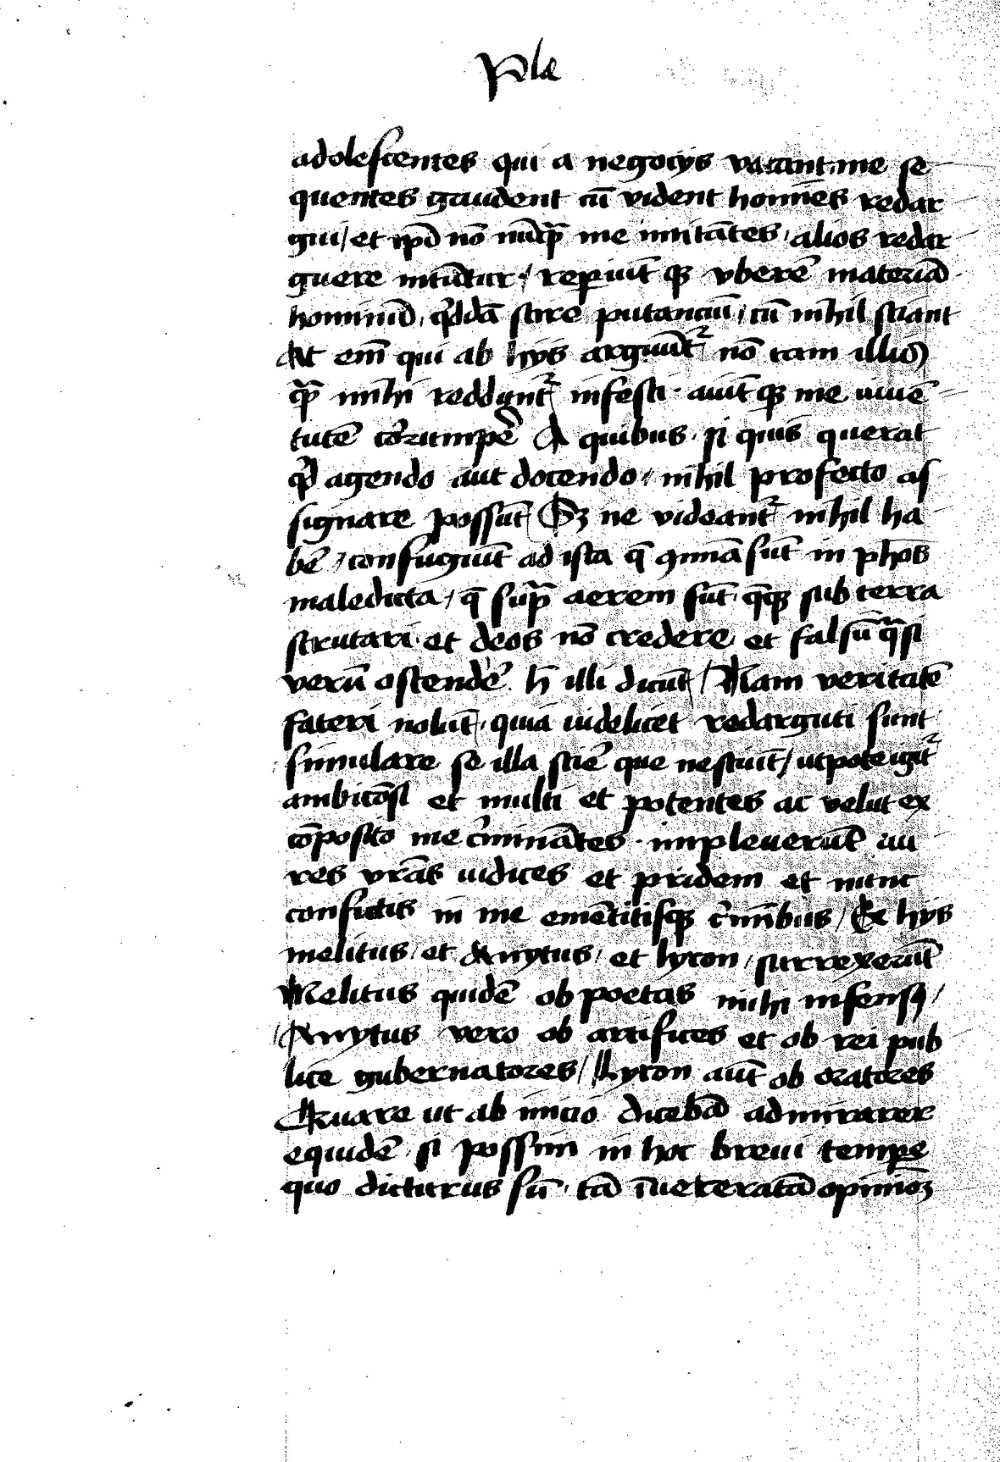 Pla
adolescentes qui a negocijs vacant, me se
quentes gaudent cū vident homīes redar
gui / et ip̄i nō nūq̄ me imitātes, alios redar
guere nitūtur / reperiūt q; vberē materiā
hominū, q̄ddā scire putanciū / cū nihil sciant
At em̄ qui ab hijs arguūtr nō tam illis
q̄ mihi reddūtr infesti. aiūt q; me iuuē
tutē corrūpē A quibus, si quis querat
qd agendo aut docendo / nihil profecto as
signare possūt / Sz ne videantr nihil ha
bē, / confugiūt ad ista q̄ ꝯmūia sūt in phōs
maledicta / q̄ sup̄ aerem sūt q̄q; sub terra
scrutari. et deos nō credere et falsū q̄si
verū ostendē. h̄ illi dicūt / Nam veritatē
fateri nolūt. quia videlicet redarguti sunt
simulare se illa scīe que nesciūt / utpote igitr
ambicōsi et multi et potentes ac velut ex
cōposito me c̄minātes. impleuerūt au
res vrās iudices et pridem et nunc
confictis in me emētitisq; c̄mībus / Ex hijs
melitus / et Anytus / et lycon / surrexerūt
Melitus quidē ob poetas mihi infensq /
Anytus vero ob artifices et ob rei pub
lice gubernatores / Lycon aūt ob oratores
Quare ut ab inicio dicebā admirarer
equidē si possim in hoc breui tempe
quo dicturus sū. tā īueteratā opinionē